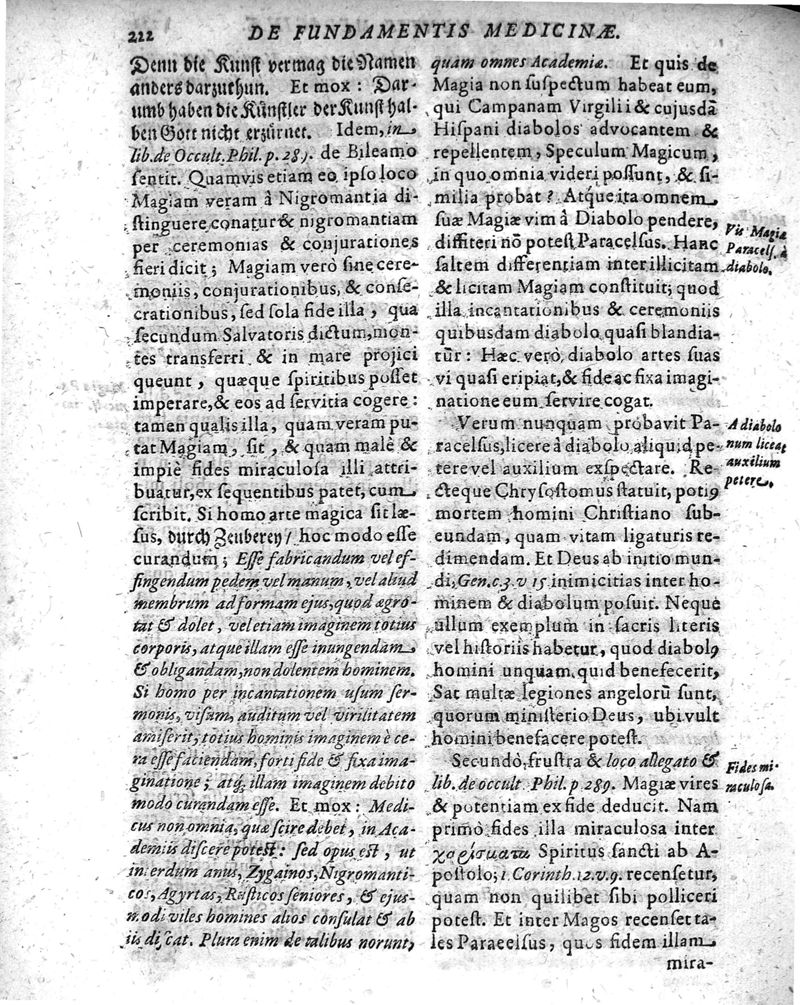 222 DE FUNDAMENTIS MEDICINÆ.
Denn die Kunst vermag die Namen
anders darzuthun. Et mox : Dar-
umb haben die Künstler der Kunst hal-
ben Gott nicht erzürnet. Idem, in
lib. de Occult. Phil. p. 289. de Bileamo
sentit. Quamvis etiam eo ipso loco
Magiam veram à Nigromantia di-
stinguere conatur & nigromantiam
per ceremonias & conjurationes
fieri dicit ; Magiam verò sine cere-
moniis, conjurationibus, & conse-
crationibus, sed sola fide illa, qua
secundum Salvatoris dictum, mon-
tes transferri & in mare projici
queunt, quæque spiritibus posset
imperare, & eos ad servitia cogere :
tamen qualis illa, quam veram pu-
tat Magiam, sit, & quam malè &
impiè fides miraculosa illi attri-
buatur, ex sequentibus patet, cum
scribit. Si homo arte magica sit læ-
sus, durch Zeuberey / hoc modo esse
curandum ; Esse fabricandum vel ef-
fingendum pedem vel manum, vel aliud
membrum ad formam ejus, quod ægro-
tat & dolet, vel etiam imaginem totius
corporis, atque illam esse inungendam
& obligandam, non dolentem hominem.
Si homo per incantationem usum ser-
monis, visum, auditum vel virilitatem
amiserit, totius hominis imaginem è ce-
ra esse faciendam, forti fide & fixa ima-
ginatione ; atq; illam imaginem debito
modo curandam esse. Et mox : Medi-
cus non omnia, quæ scire debet, in Aca-
demiis discere potest : sed opus est, ut
interdum anus, Zygainos, Nigromanti-
cos, Agyrtas, Rusticos seniores, & ejus-
modi viles homines alios consulat & ab
iis discat. Plura enim de talibus norunt,
quam omnes Academiæ. Et quis de
Magia non suspectum habeat eum,
qui Campanam Virgilii & cujusdã
Hispani diabolos advocantem &
repellentem, Speculum Magicum,
in quo omnia videri possunt, & si-
milia probat ? Atq́ue ita omnem
suæ Magiæ vim à Diabolo pendere,
diffiteri nõ potest Paracelsus. Hanc
saltem differentiam inter illicitam
& licitam Magiam constituit; quod
illa incantationibus & ceremoniis
quibusdam diabolo quasi blandia-
tur : Hæc verò, diabolo artes suas
vi quasi eripiat, & fide ac fixa imagi-
natione eum servire cogat.
Verum nunquam probavit Pa-
racelsus, licere à diabolo aliquid pe-
tere vel auxilium exspectare. Re-
cteque Chrysostomus statuit, potiꝰ
mortem homini Christiano sub-
eundam, quam vitam ligaturis re-
dimendam. Et Deus ab initio mun-
di, Gen. c. 3. v 15 inimicitias inter ho-
minem & diabolum posuit. Neque
ullum exemplum in sacris literis
vel historiis habetur, quod diabolꝰ
homini unquam quid benefecerit,
Sat multæ legiones angelorũ sunt,
quorum ministerio Deus, ubi vult
homini benefacere potest.
Secundò, frustra & loco allegato &
lib. de occult. Phil. p 289. Magiæ vires
& potentiam ex fide deducit. Nam
primò fides illa miraculosa inter
χαρίσματα Spiritus sancti ab A-
postolo; 1. Corinth. 12. v. 9. recensetur,
quam non quilibet sibi polliceri
potest. Et inter Magos recenset ta-
les Paracelsus, quos fidem illam
mira-
Vis Magiæ
Paracels. à
diabolo.
A diabolo
num liceat
auxilium
petere.
Fides mi-
raculosa.